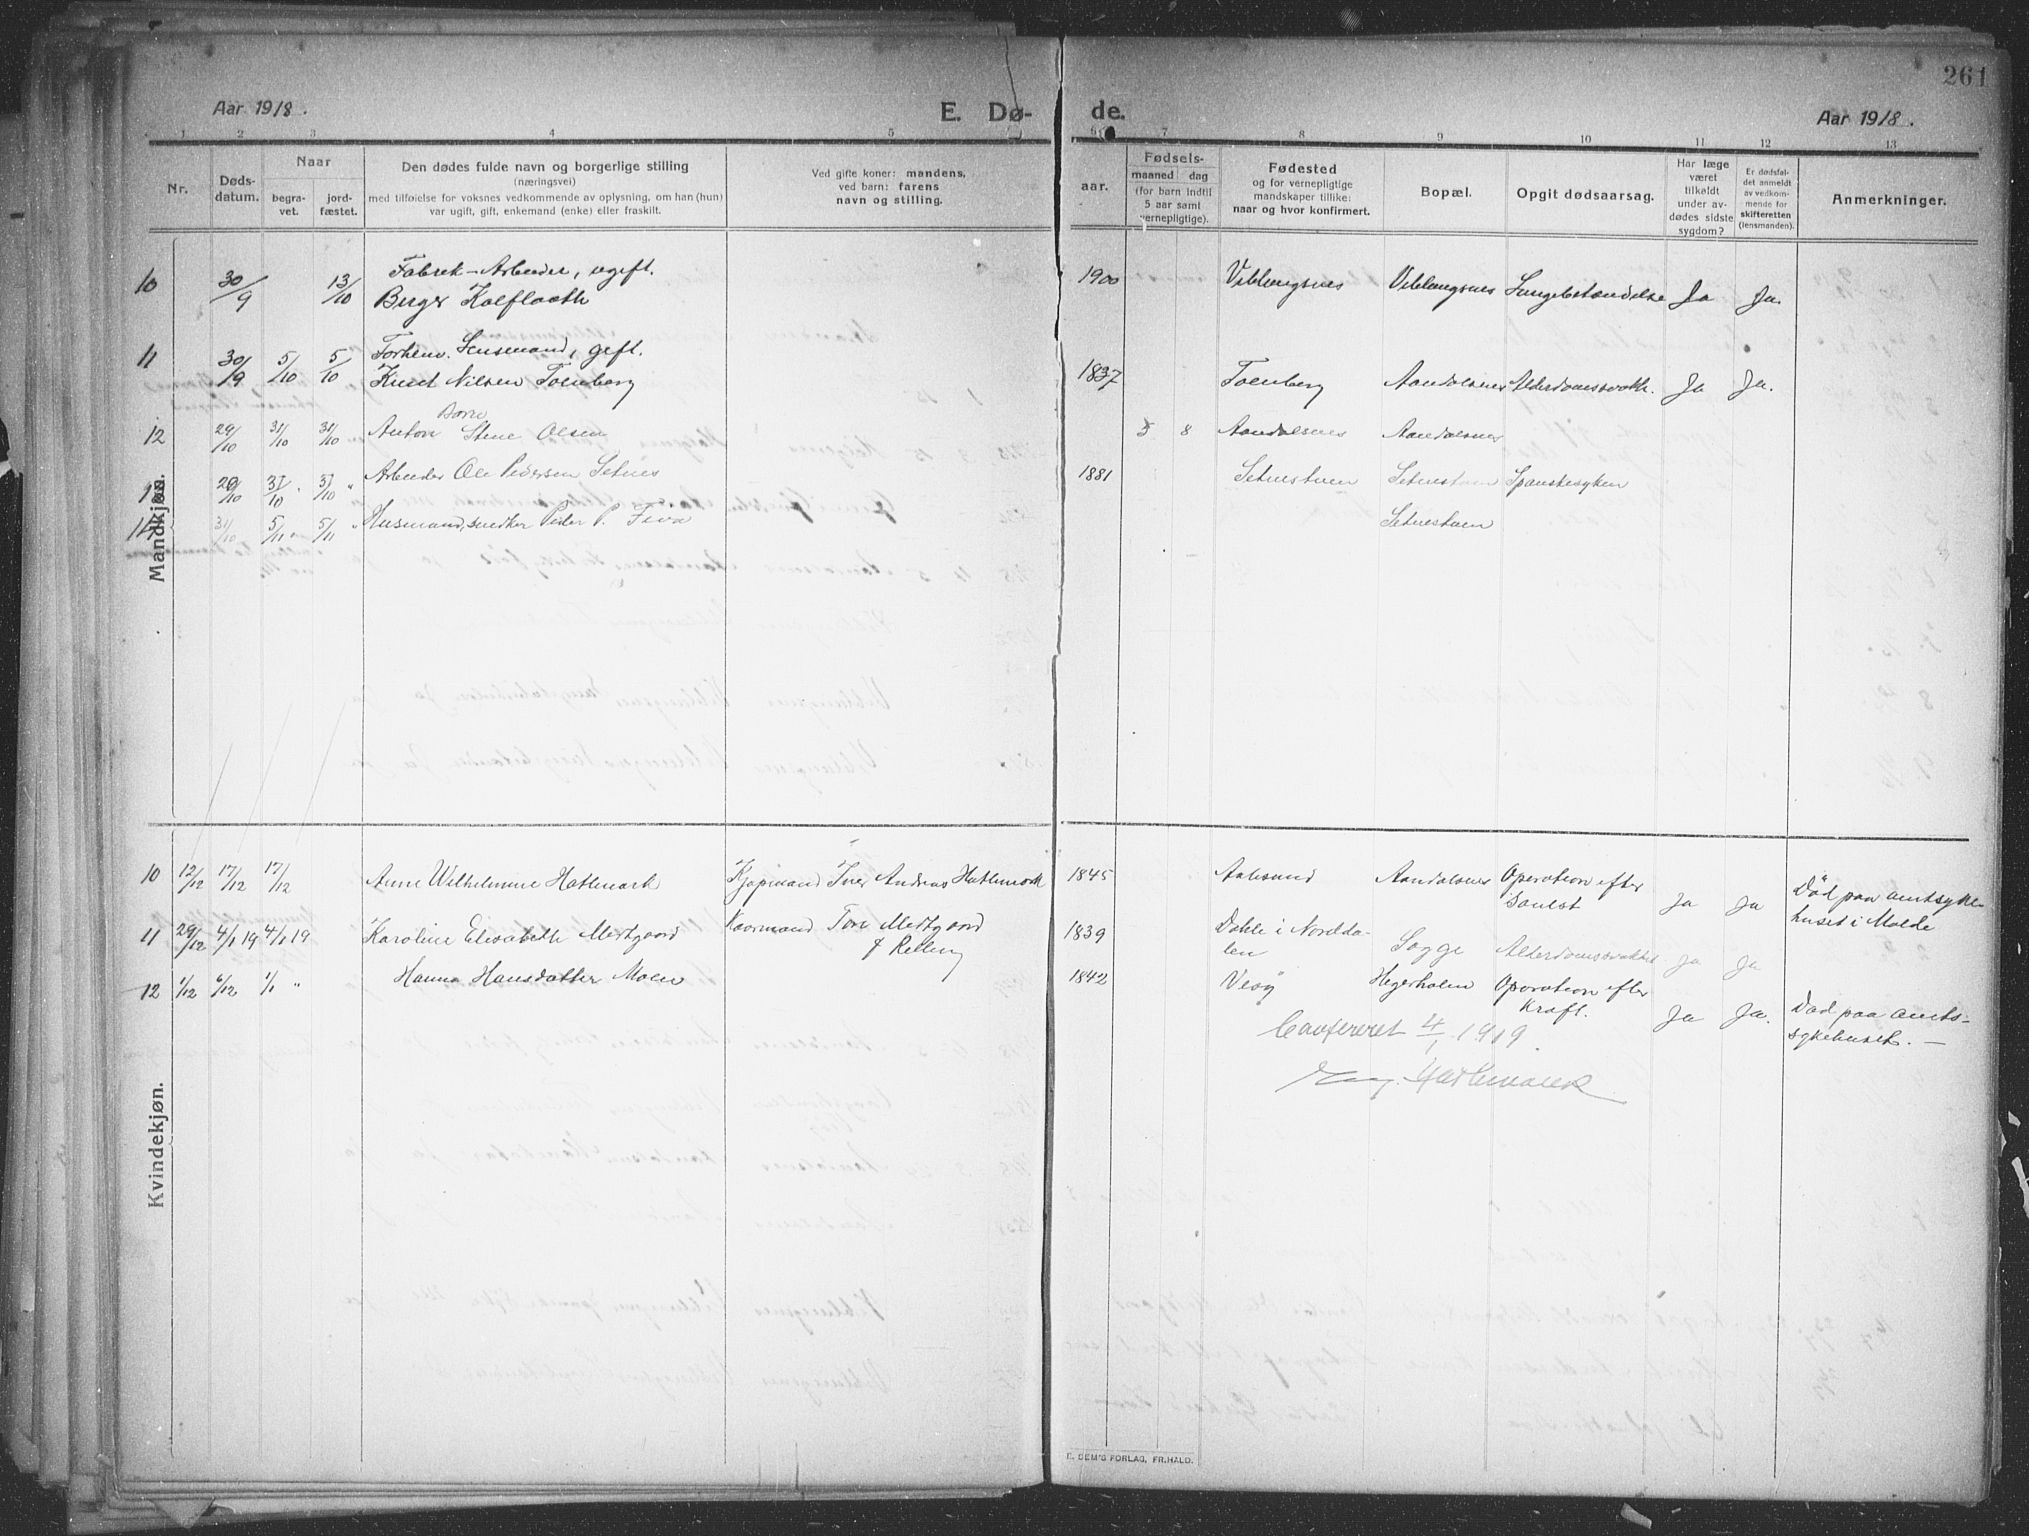 261
Aar 1918.
E. Dø-
de.
Aar 1918.
1 2 3 4 5 6 7 8 9 10 11 12 13
Nr.
Døds-
datum.
Naar
begra-
vet.
jord-
fæstet.
Den dødes fulde navn og borgerlige stilling
(næringsvei)
med tilføielse for voksnes vedkommende av oplysning, om han (hun)
var ugift, gift, enkemand (enke) eller fraskilt.
Ved gifte koner: mandens,
ved barn: farens
navn og stilling.
aar.
Fødsels-
maaned dag
(for barn indtil
5 aar samt
vernepligtige).
Fødested
og for vernepligtige
mandskaper tillike:
naar og hvor konfirmert.
Bopæl.
Opgit dødsaarsag.
Har læge
været
tilkaldt
under av-
dødes sidste
sygdom?
Er dødsfal-
det anmeldt
av vedkom-
mende for
skifteretten
(lensmanden).
Anmerkninger.
Mandkjøn.
10 30/9 13/10 Fabrik-Arbeider, ugift.
Birger Kolflaath
1900 Veblungsnes Veblungsnes Lungebetændelse Ja Ja.
11 30/9 5/10 5/10 Forhenv. Lensmand, gift.
Knut Nilsen Tornberg
1837 Aandalsnes Alderdomssvakh. Ja Ja.
Barn
12 29/10 31/10 31/10 Anton Stene Olsen
5 8 Aandalsnes Aandalsnes
29/10 31/10 " 31/10 " Arbeider Ole Pedersen Setnes
1881 Setnesmoen Setnesmoen Spanskesyken
14 31/10 5/11 " 5/11 " Husmand, snedker Peder P. Fiva
Setnesmoen
Kvindekjøn.
10 12/12 17/12 17/12 Anne Wilhelmine Hatlemark Kjøpmand Iver Andreas Hatlemark
1845 Aalesund Aandalsnes Operation efter
Ja Ja Død paa amtssyke-
huset i Molde
11 29/12 4/1 19 4/1 19 Karoline Elisabeth Mestgaard Kaarmand Tore Mestgaard
f Relling
1839 Dahle i Nordda-
len Sogge Alderdomssvakhet Ja Ja
12 1/12 6/12 1/1 " Hanna Hansdatter Moen
1842 Vesø Hegerholm Operation efter
Kræft. Ja Ja. Død paa amts-
sykehuset. —
Confereret 4/1 1919
Hatlemark
E. SEM'S FORLAG, FR.HALD.